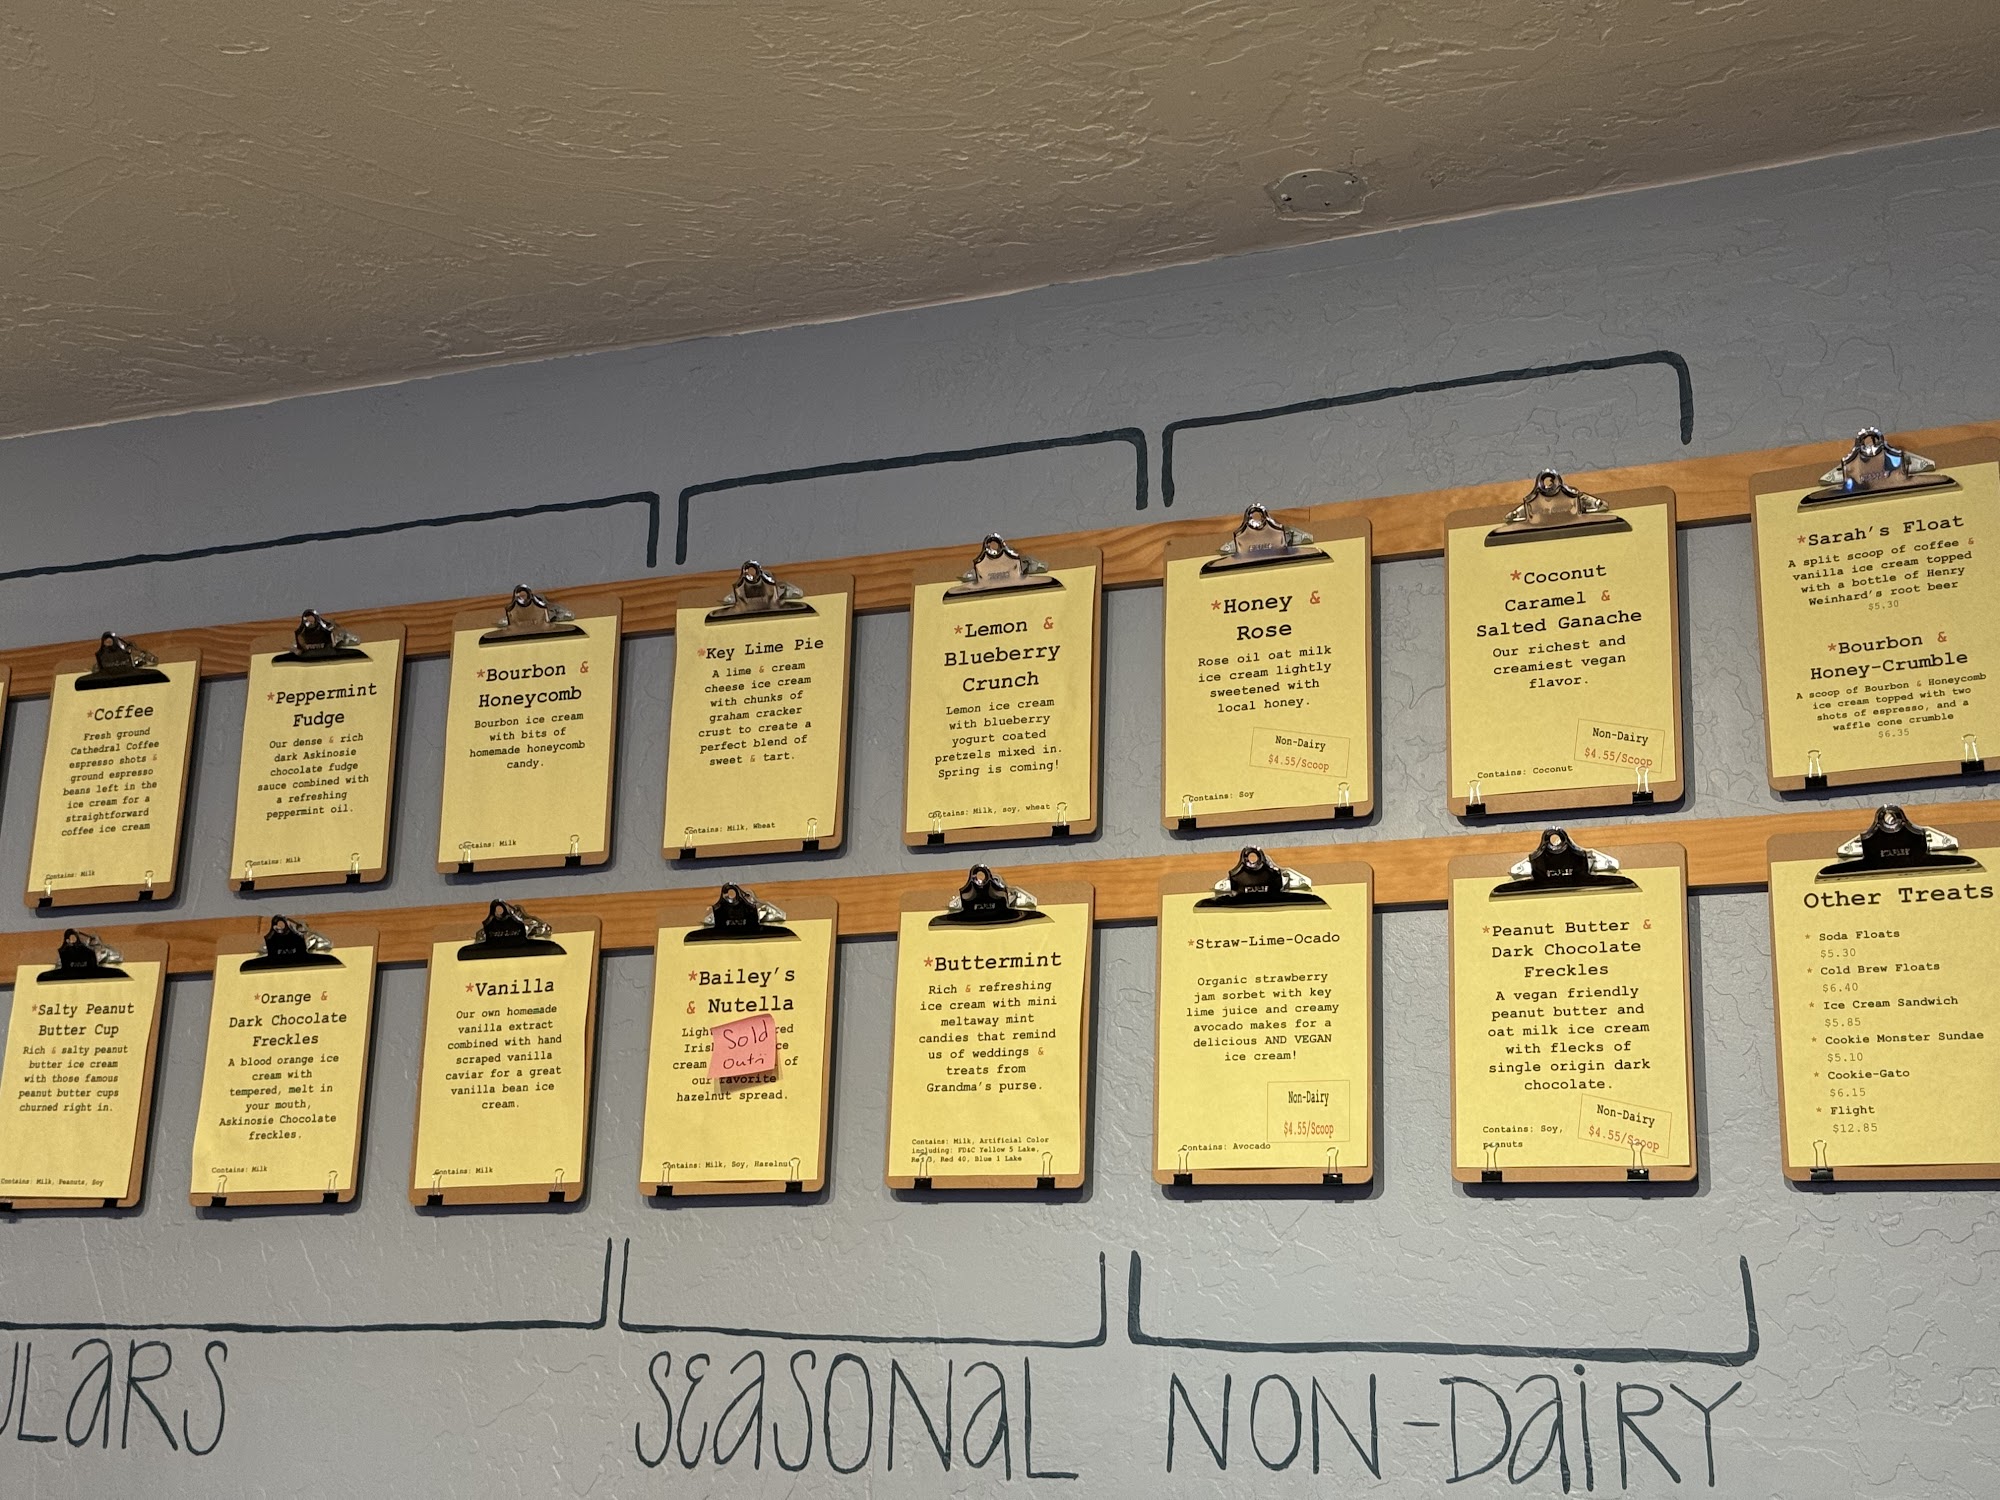 *Coffee
Fresh ground
Cathedral Coffee
espresso shots &
ground espresso
beans left in the
ice cream for a
straightforward
coffee ice cream
Contains: Milk
*Peppermint
Fudge
Our dense & rich
dark Askinosie
chocolate fudge
sauce combined with
a refreshing
peppermint oil.
Contains: Milk
*Bourbon &
Honeycomb
Bourbon ice cream
with bits of
homemade honeycomb
candy.
Contains: Milk
*Key Lime Pie
A lime & cream
cheese ice cream
with chunks of
graham cracker
crust to create a
perfect blend of
sweet & tart.
Contains: Milk, Wheat
*Lemon &
Blueberry
Crunch
Lemon ice cream
with blueberry
yogurt coated
pretzels mixed in.
Spring is coming!
Contains: Milk, soy, wheat
*Honey &
Rose
Rose oil oat milk
ice cream lightly
sweetened with
local honey.
Non-Dairy
$4.55/Scoop
Contains: Soy
*Coconut
Caramel &
Salted Ganache
Our richest and
creamiest vegan
flavor.
Non-Dairy
$4.55/Scoop
Contains: Coconut
*Sarah's Float
A split scoop of coffee &
vanilla ice cream topped
with a bottle of Henry
Weinhard's root beer
$5.30
*Bourbon &
Honey-Crumble
A scoop of Bourbon & Honeycomb
ice cream topped with two
shots of espresso, and a
waffle cone crumble
$6.35
*Salty Peanut
Butter Cup
Rich & salty peanut
butter ice cream
with those famous
peanut butter cups
churned right in.
Contains: Milk, Peanuts, Soy
*Orange &
Dark Chocolate
Freckles
A blood orange ice
cream with
tempered, melt in
your mouth,
Askinosie Chocolate
freckles.
Contains: Milk
*Vanilla
Our own homemade
vanilla extract
combined with hand
scraped vanilla
caviar for a great
vanilla bean ice
cream.
Contains: Milk
*Bailey's
& Nutella
Sold
Out
cream of
our favorite
hazelnut spread.
Contains: Milk, Soy, Hazelnut
*Buttermint
Rich & refreshing
ice cream with mini
meltaway mint
candies that remind
us of weddings &
treats from
Grandma's purse.
Contains: Milk, Artificial Color
including: FD&C Yellow 5 Lake,
Red 3, Red 40, Blue 1 Lake
*Straw-Lime-Ocado
Organic strawberry
jam sorbet with key
lime juice and creamy
avocado makes for a
delicious AND VEGAN
ice cream!
Non-Dairy
$4.55/Scoop
Contains: Avocado
*Peanut Butter &
Dark Chocolate
Freckles
A vegan friendly
peanut butter and
oat milk ice cream
with flecks of
single origin dark
chocolate.
Non-Dairy
$4.55/Scoop
Contains: Soy,
peanuts
Other Treats
* Soda Floats
$5.30
* Cold Brew Floats
$6.40
* Ice Cream Sandwich
$5.85
* Cookie Monster Sundae
$5.10
* Cookie-Gato
$6.15
* Flight
$12.85
ULARS
SEASONAL
NON-DAIRY